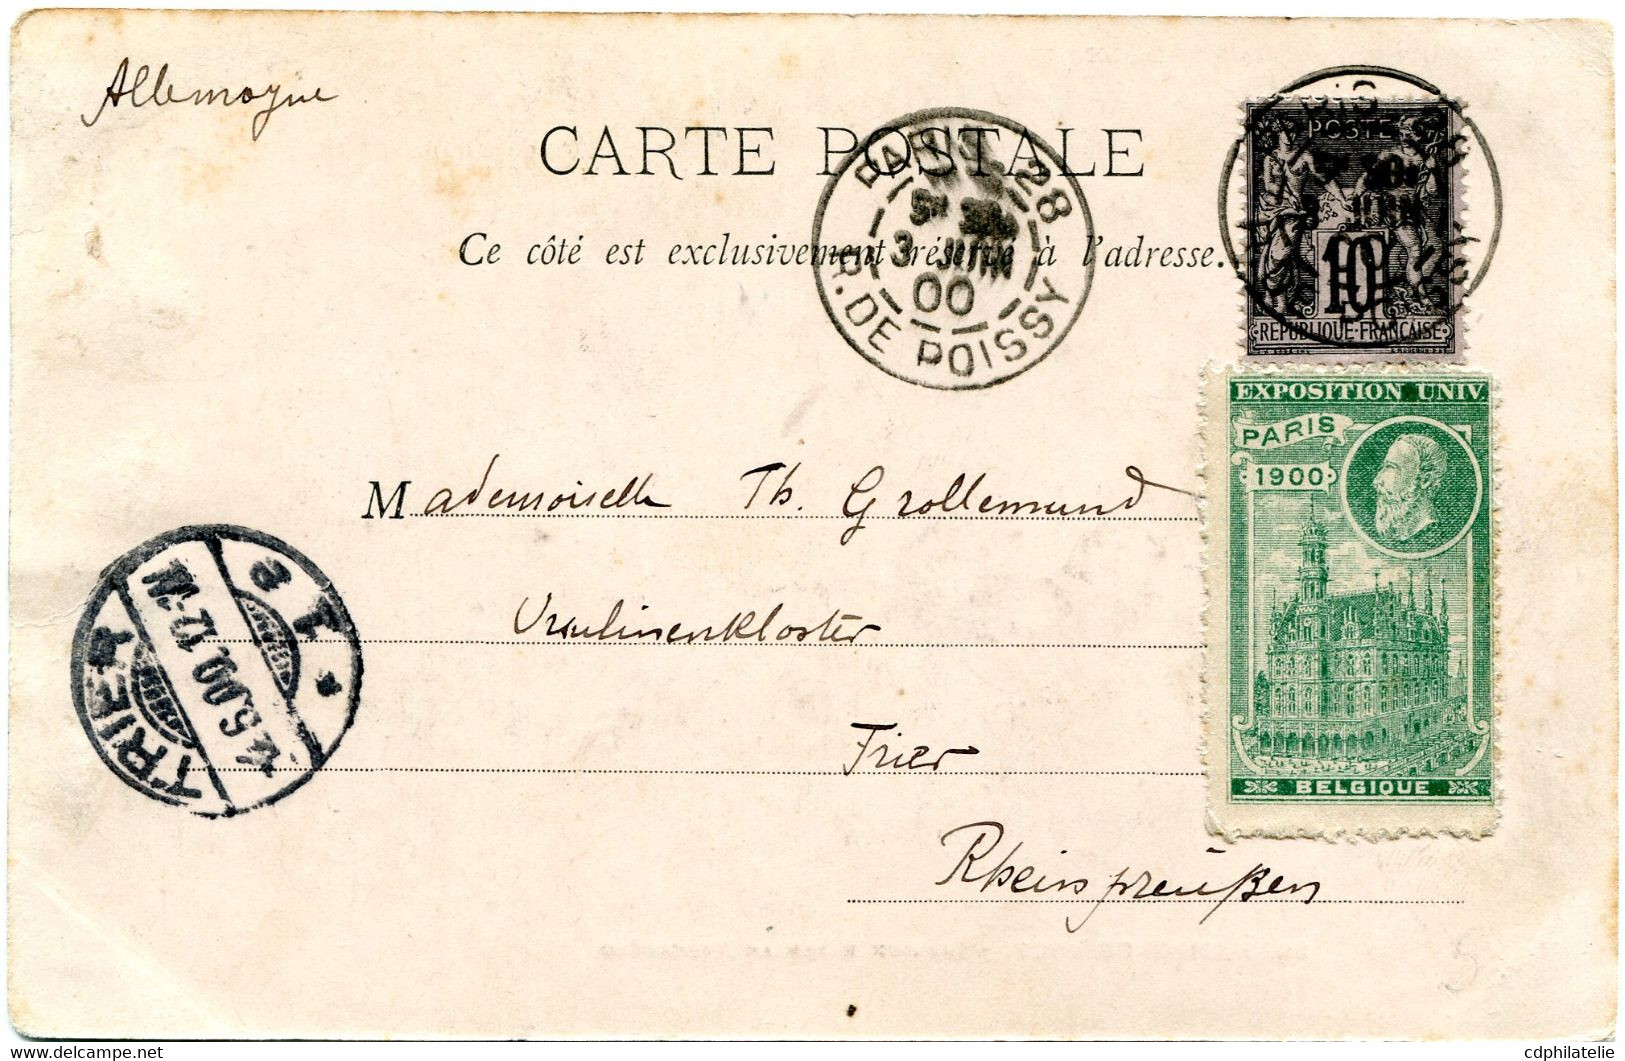 Allemagne
CARTE POSTALE
Ce côté est exclusivement réservé à l'adresse.
PARIS 28
3 JUIN
00
R. DE POISSY
POSTE
10
REPUBLIQUE FRANÇAISE
EXPOSITION UNIV.
PARIS
1900
BELGIQUE
Mademoiselle Th. Grollemund
Ursulinenkloster
Trier
Rheinpreußen
TRIER
12-
cdphilatelie